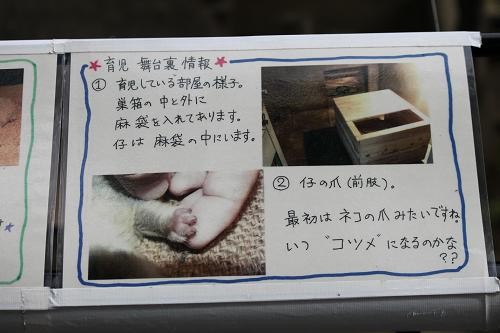 ★育児 舞台裏 情報★
① 育児している部屋の様子。
巣箱の 中と外に
麻袋を入れてあります。
仔は 麻袋 の中にいます。
② 仔の爪(前肢)。
最初は ネコの爪みたいですね。
いつ “コツメ” になるのかな
??